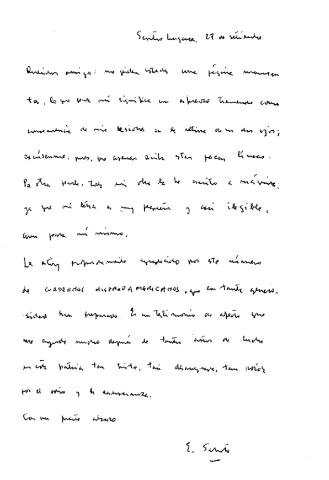 Santos Lugares, 29 de setiembre
Queridos amigos: me piden ustedes una página manuscri
ta, lo que para mí significa un esfuerzo tremendo como
consecuencia de mis lesiones en la retina de mis dos ojos;
discúlpenme, pues, que apenas escriba estas pocas líneas.
Por otra parte, toda mi obra la he escrito a máquina,
ya que mi letra es muy pequeña y casi ilegible,
aun para mí mismo.
Le estoy profundamente agradecido por este número
de CUADERNOS HISPANOAMERICANOS, que con tanta genero
sidad han preparado. Es un testimonio de afecto que
me ayuda mucho después de tantos años de lucha
en esta patria tan triste, tan desangrada, tan
por el odio y la
Con un fuerte abrazo
E. Sabato